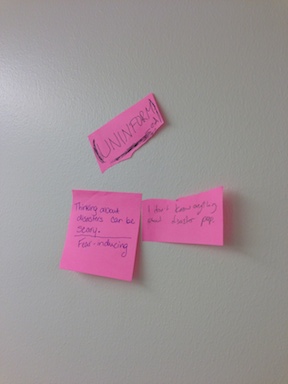 UNINFORM
ed
Thinking about
disasters can be
scary.
Fear-inducing
I don't know anything
about disaster prep.